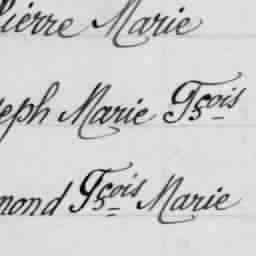 Pierre Marie
seph Marie Fçois
mond Fçois Marie